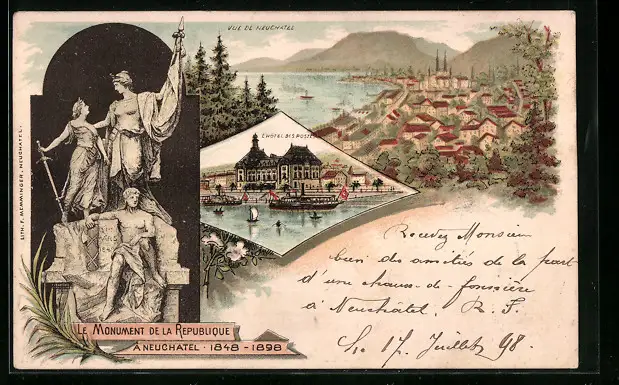 VUE DE NEUCHATEL
L'HÔTEL DES POSTES
LITH. F. MEMMINGER, NEUCHATEL.
LE MONUMENT DE LA REPUBLIQUE
À NEUCHATEL · 1848 - 1898
Recevez Monsieur
bien des amitiés de la part
d'une
à Neuchâtel. R. F.
17 Juillet 98.